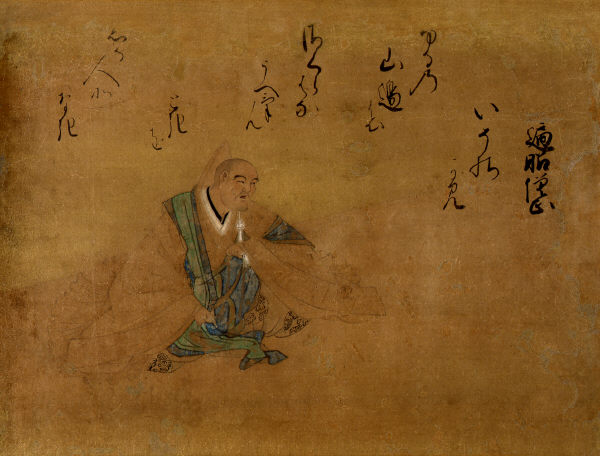 遍昭僧正
いその
かみ
ふる乃
山邊の
さくらはな
うへけん
時を
しる人そ
なき